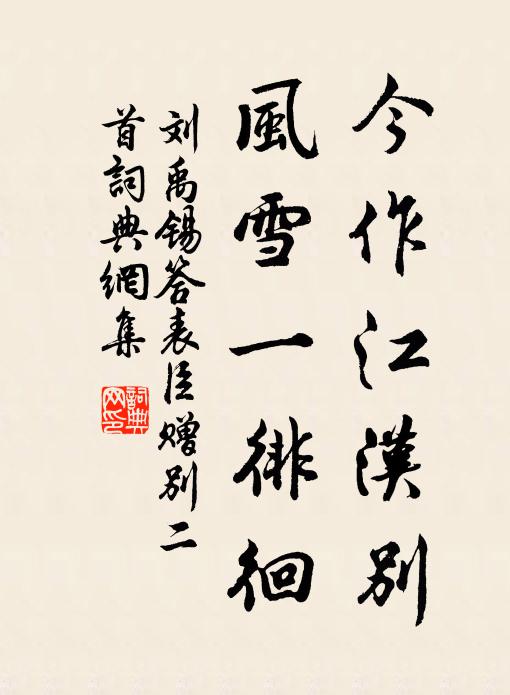 今作江漢别
風雪一徘徊
刘禹锡答表臣赠别二
首詞典網集
詞典
网印